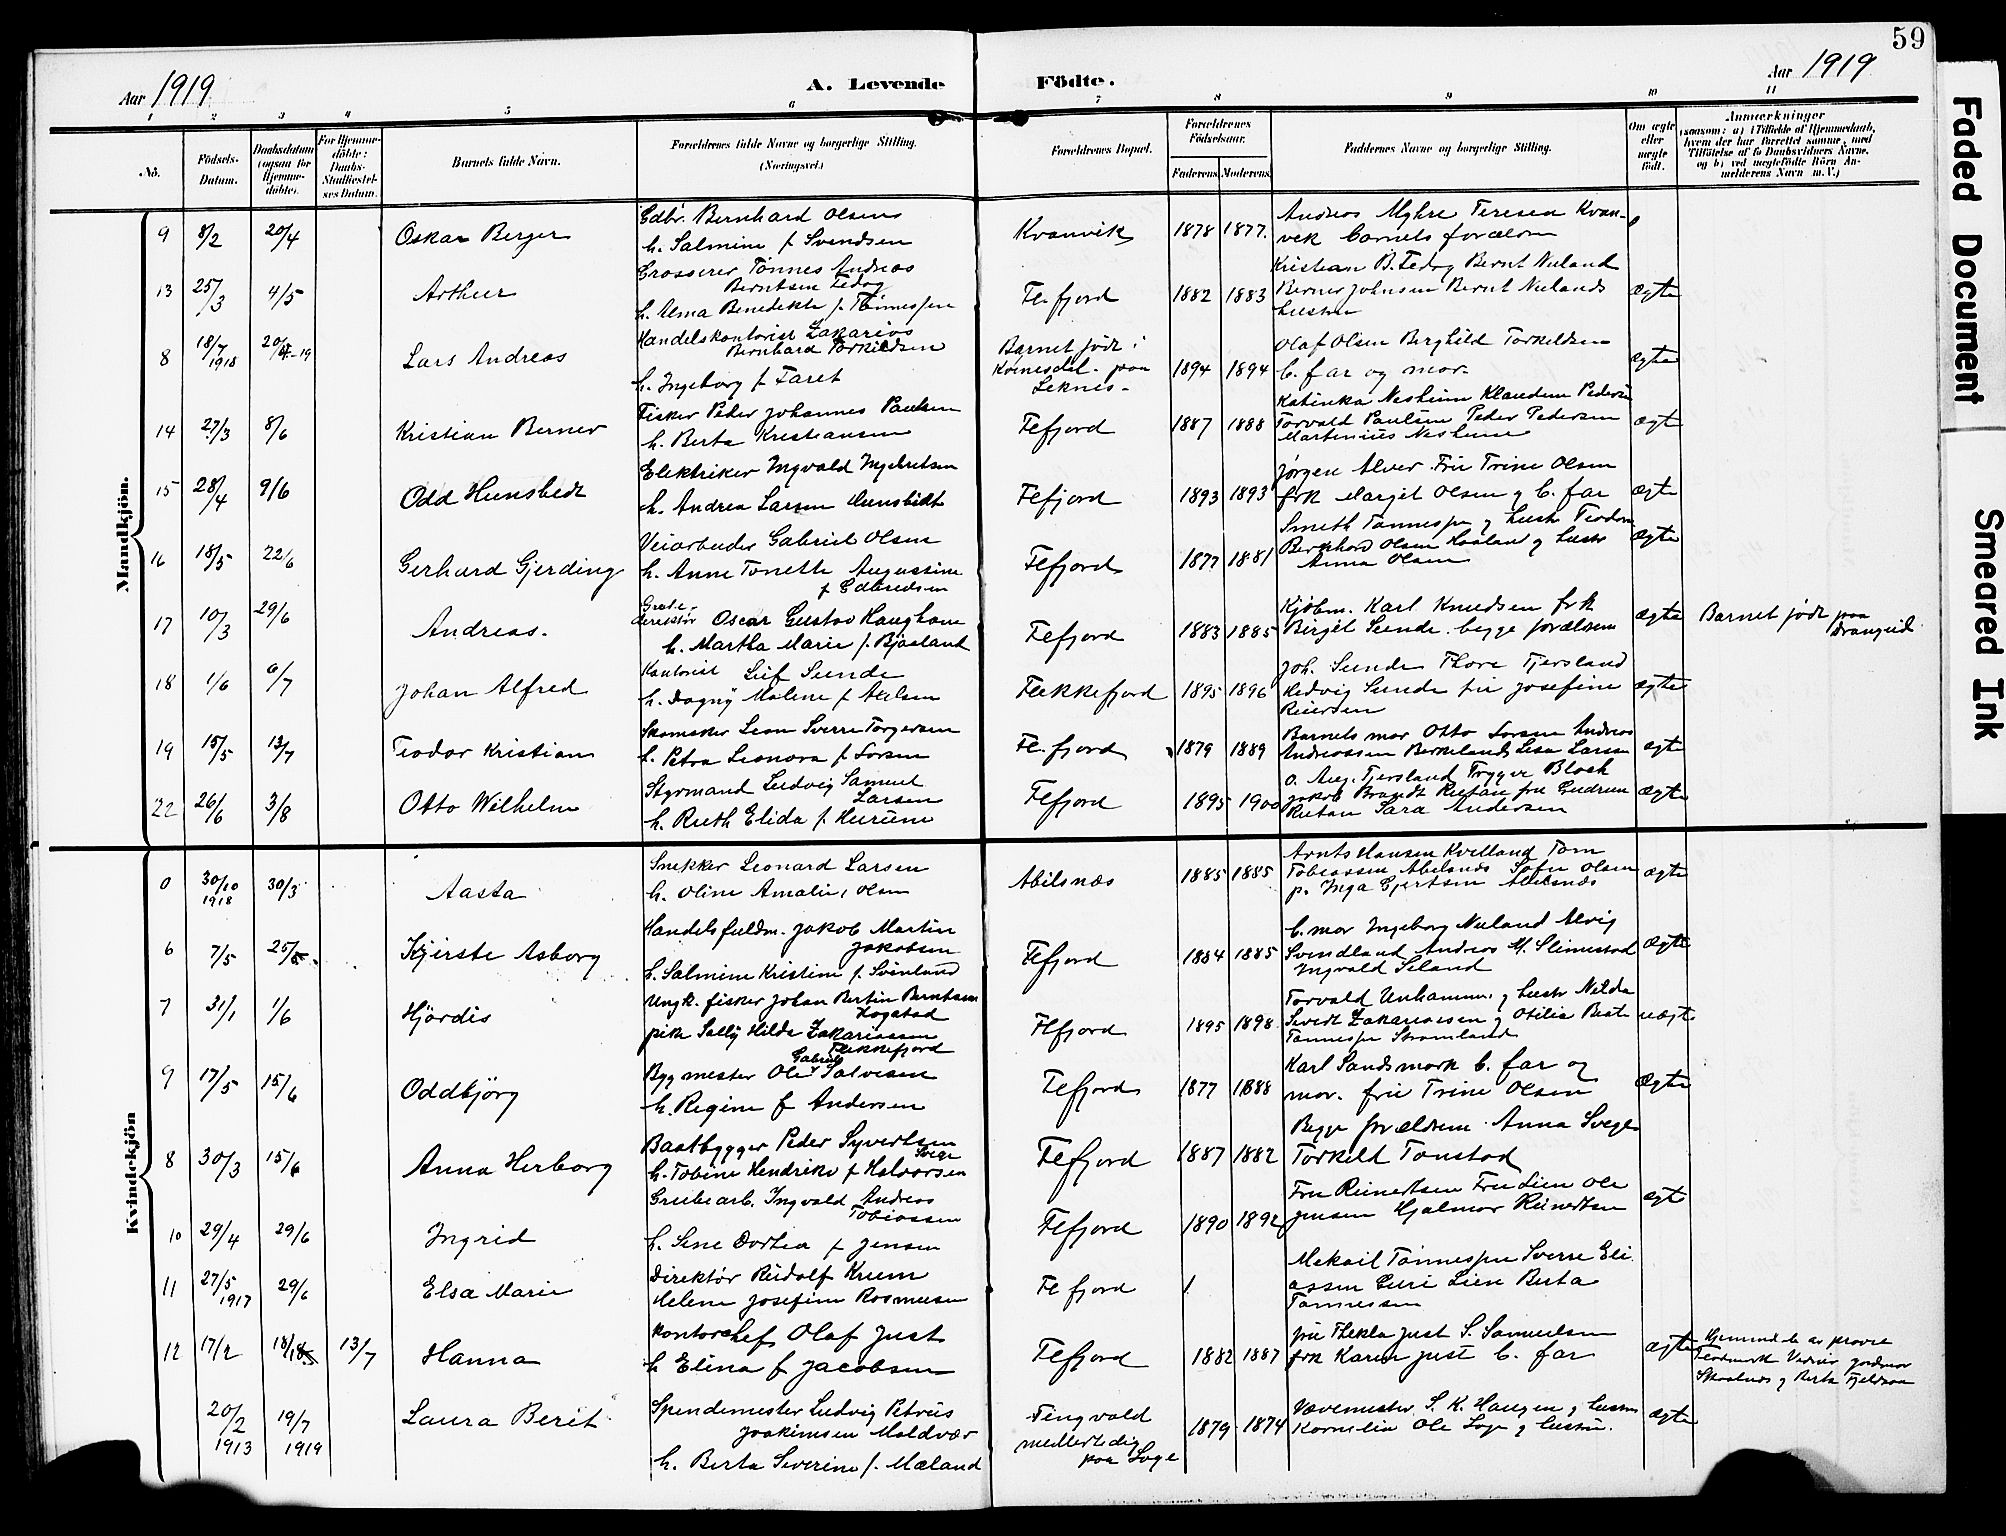 59
Aar 1919
A. Levende Födte.
Aar 1919
1 2 3 4 5 6 7 8 9 10 11
No.
Födsels-Datum.
Daabsdatum (ogsaa for Hjemme-döbte).
For Hjemme-döbte: Daabs-Stadfæstel-ses Datum.
Barnets fulde Navn.
Forældrenes fulde Navne og borgerlige Stilling.
(Næringsvei.)
Forældrenes Bopæl.
Forældrenes Födselsaar.
Faderens Moderens
Faddernes Navne og borgerlige Stilling.
Om ægte eller uægte födt.
Anmærkninger
(saasom: a) i Tilfælde af Hjemmedaab, hvem der har forrettet samme, med Tilföielse af to Daabsvidners Navne, og b) ved uægtefödte Börn An-melderens Navn m. V.)
Mandkjön.
9 8/2 20/4 Oskar Berger
Bernhard Olsen
h. Salmine f Svendsen
Kvanvik 1878 1877.
Andreas Myhre Teresen Kvan-
vek barnets forældre
13 25/3 4/5 Arthur
Grosserer Tönnes Andreas
Berntsen Fedog
h. Alma Benedikte f. Tönnespen
Flefjord 1882 1883
Kristian B. Fedog Bernt Nuland
Berner Johnsen Bernt Nulands
hustru
ægte
8 18/7 1918 20/4-19 Lars Andreas
Handelskontorist Zakarias
Bernhard Torkildsen
h. Ingeborg f Faret
Barnet födt i
Kvinesdal paa
Leknes-
1894 1894
Olaf Olsen Berghild Torkeldsen
b. far og mor.
ægte
14 27/3 8/6 Kristian Berner
Fisker Peder Johannes Paulsen
h. Berta Kristiansen
Flefjord 1887 1888
Katinka Nesheim Klaudine Pedersen
Torvald Paulsen Peder Pedersen
Martinius Nesheim
ægte
15 28/4 9/6 Odd Hunsbedt
Elektriker Ingvald Ingebretsen
h. Andrea Larsen Hunsbedt
Flefjord 1893 1893
Jørgen Alver Fru Trine Olsen
frk Margit Olsen og b. far
ægte
16 18/5 22/6 Gerhard Gjerding
Veiarbeider Gabriel Olsen
h. Anne Tonette Augustine
f Edbredsen
Flefjord 1877 1881
Smeth Tønnespen og hustr Teodora
Berghard Olsen Haaland og hustr
Anna Olsen
ægte
17 10/3 29/6 Andreas.
Grube-
direktør Oscar Gustav Haughom
h. Martha Marie f. Bjaaland
Flefjord 1883 1885
Kjøbm. Karl Knudsen frk
Birgit Sunde. begge forældrene
ægte
Barnet födt paa
Drangeid
18 1/6 6/7 Johan Alfred
Kontorist Leif Sunde
h. Dagny Malene f Abelsen
Flekkefjord 1895 1896
Joh. Sunde Thora Fjersland
Hedvig Sunde fru Josefine
Reiersen
ægte
19 15/5 13/7 Teodor Kristian
Skomaker Leon Sverre Torgersen
h. Petra Leonora f Larsen
Flefjord 1879 1889
Barnets mor Otto Larsen Andreas
Andreassen Birkeland Lisa Larsen
ægte
22 26/6 3/8 Otto Wilhelm
Styrmand Ludvig Samuel
Larsen
h. Ruth Elida f Hurum
Flefjord 1895 1900
o. Aug. Fjersland Trygve Bloch
Jakob Brandt Restan fru Gudrun
Restan Sara Andersen
ægte
Kvindekjön
0 30/10 1918 30/3 Aasta
Snekker Leonard Larsen
h. Oline Amalie, Olsen
Abelsnæs 1885 1885
Arnts Hansen Kvelland Tom
Tobiassen Abelsnæs Sofie Olsen
p. Inga Gjertsen Abelsnæs
ægte
6 7/5 25/5 Kjerste Asborg
Handelsfuldm. Jakob Martin
Jakobsen
h. Salmine Kristine f. Svinland
Flefjord 1884 1885
b. mor Ingeborg Nuland Alvig
Svindland Andreas M. Slimestad
Ingvald Seland
ægte
7 31/1 1/6 Hjördis
Ungk. fisker Johan Bertin Berntsen
Hogstad
pike Sally Hilda Zakariassen
Flekkefjord
Flefjord 1895 1898
Torvald Unhammer og hustr Nelda
Sevedt Zakariassen og Otilia Beate
Tønnespen Strømland
uægte
9 17/5 15/6 Oddbjörg
Bygmester Ole Gabriel Salvesen
h. Regine f Andersen
Flefjord 1877 1888
Karl Sandsmark b. far og
mor. fru Trine Olsen
ægte
8 30/3 15/6 Anna Herborg
Baatbygger Peder Syvertsen
Svege
h. Tobine Hendrikke f Halvorsen
Flefjord 1887 1882
Begge forældrene Anna Svege
Torkeld Tonstad
10 29/4 29/6 Ingrid
Grubearb. Ingvald Andreas
Tobiassen
h. Sene Dortea f Jensen
Flefjord 1890 1892
Fru Reinertsen Fru Lien Ole
Jensen Hjalmar Reinertsen
ægte
11 27/5 1917 29/6 Elsa Marie
Direktör Rudolf Krum
Helene Josefine Rasmussen
Flefjord
Mekail Tønnespen Sverre Eli
assen Guri Lien Berta
Tønnessen
12 17/2 18/ 13/7 Hanna
Kontorchef Olaf Just
h Elina f Jacobsen
Flefjord 1882 1887
fru Thekla Just S. Samuelsen
frk Karen Just b. far
ægte
Hjemmed. av provst
jordmor
og Berta Fjeldsaa
20/2 1913 19/7 1919 Laura Berit
Spindemester Ludvig Petrus
Joakimsen Moldvær
h. Berta Severine f. Mæland
Tingvold
mellertidig
paa Loge
1879 1874
Vævemester S. K. Haugen og hustru
Kornelia Ole Loge og hustru.
ægte
Faded Document
Smeared Ink